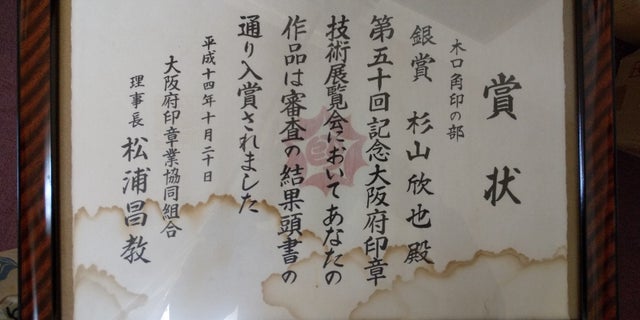 賞状
木口角印の部
銀賞 杉山欣也殿
第五十回記念大阪府印章
技術展覧会においてあなたの
作品は審査の結果頭書の
通り入賞されました
平成十四年十月二十日
大阪府印章業協同組合
理事長 松浦昌教